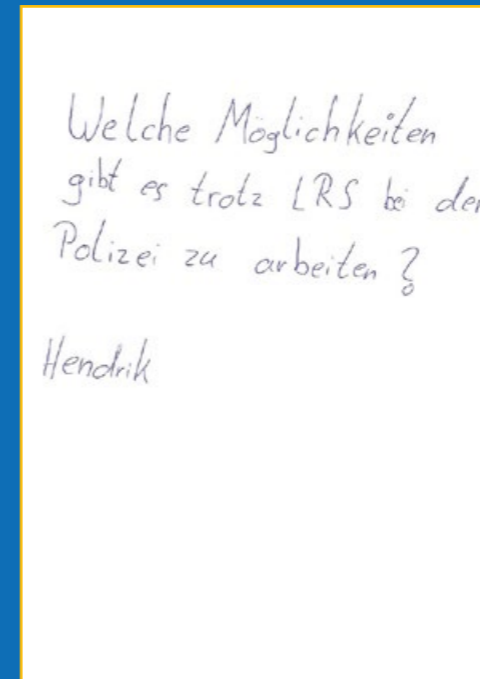 Welche Möglichkeiten
gibt es trotz LRS bei der
Polizei zu arbeiten?
Hendrik